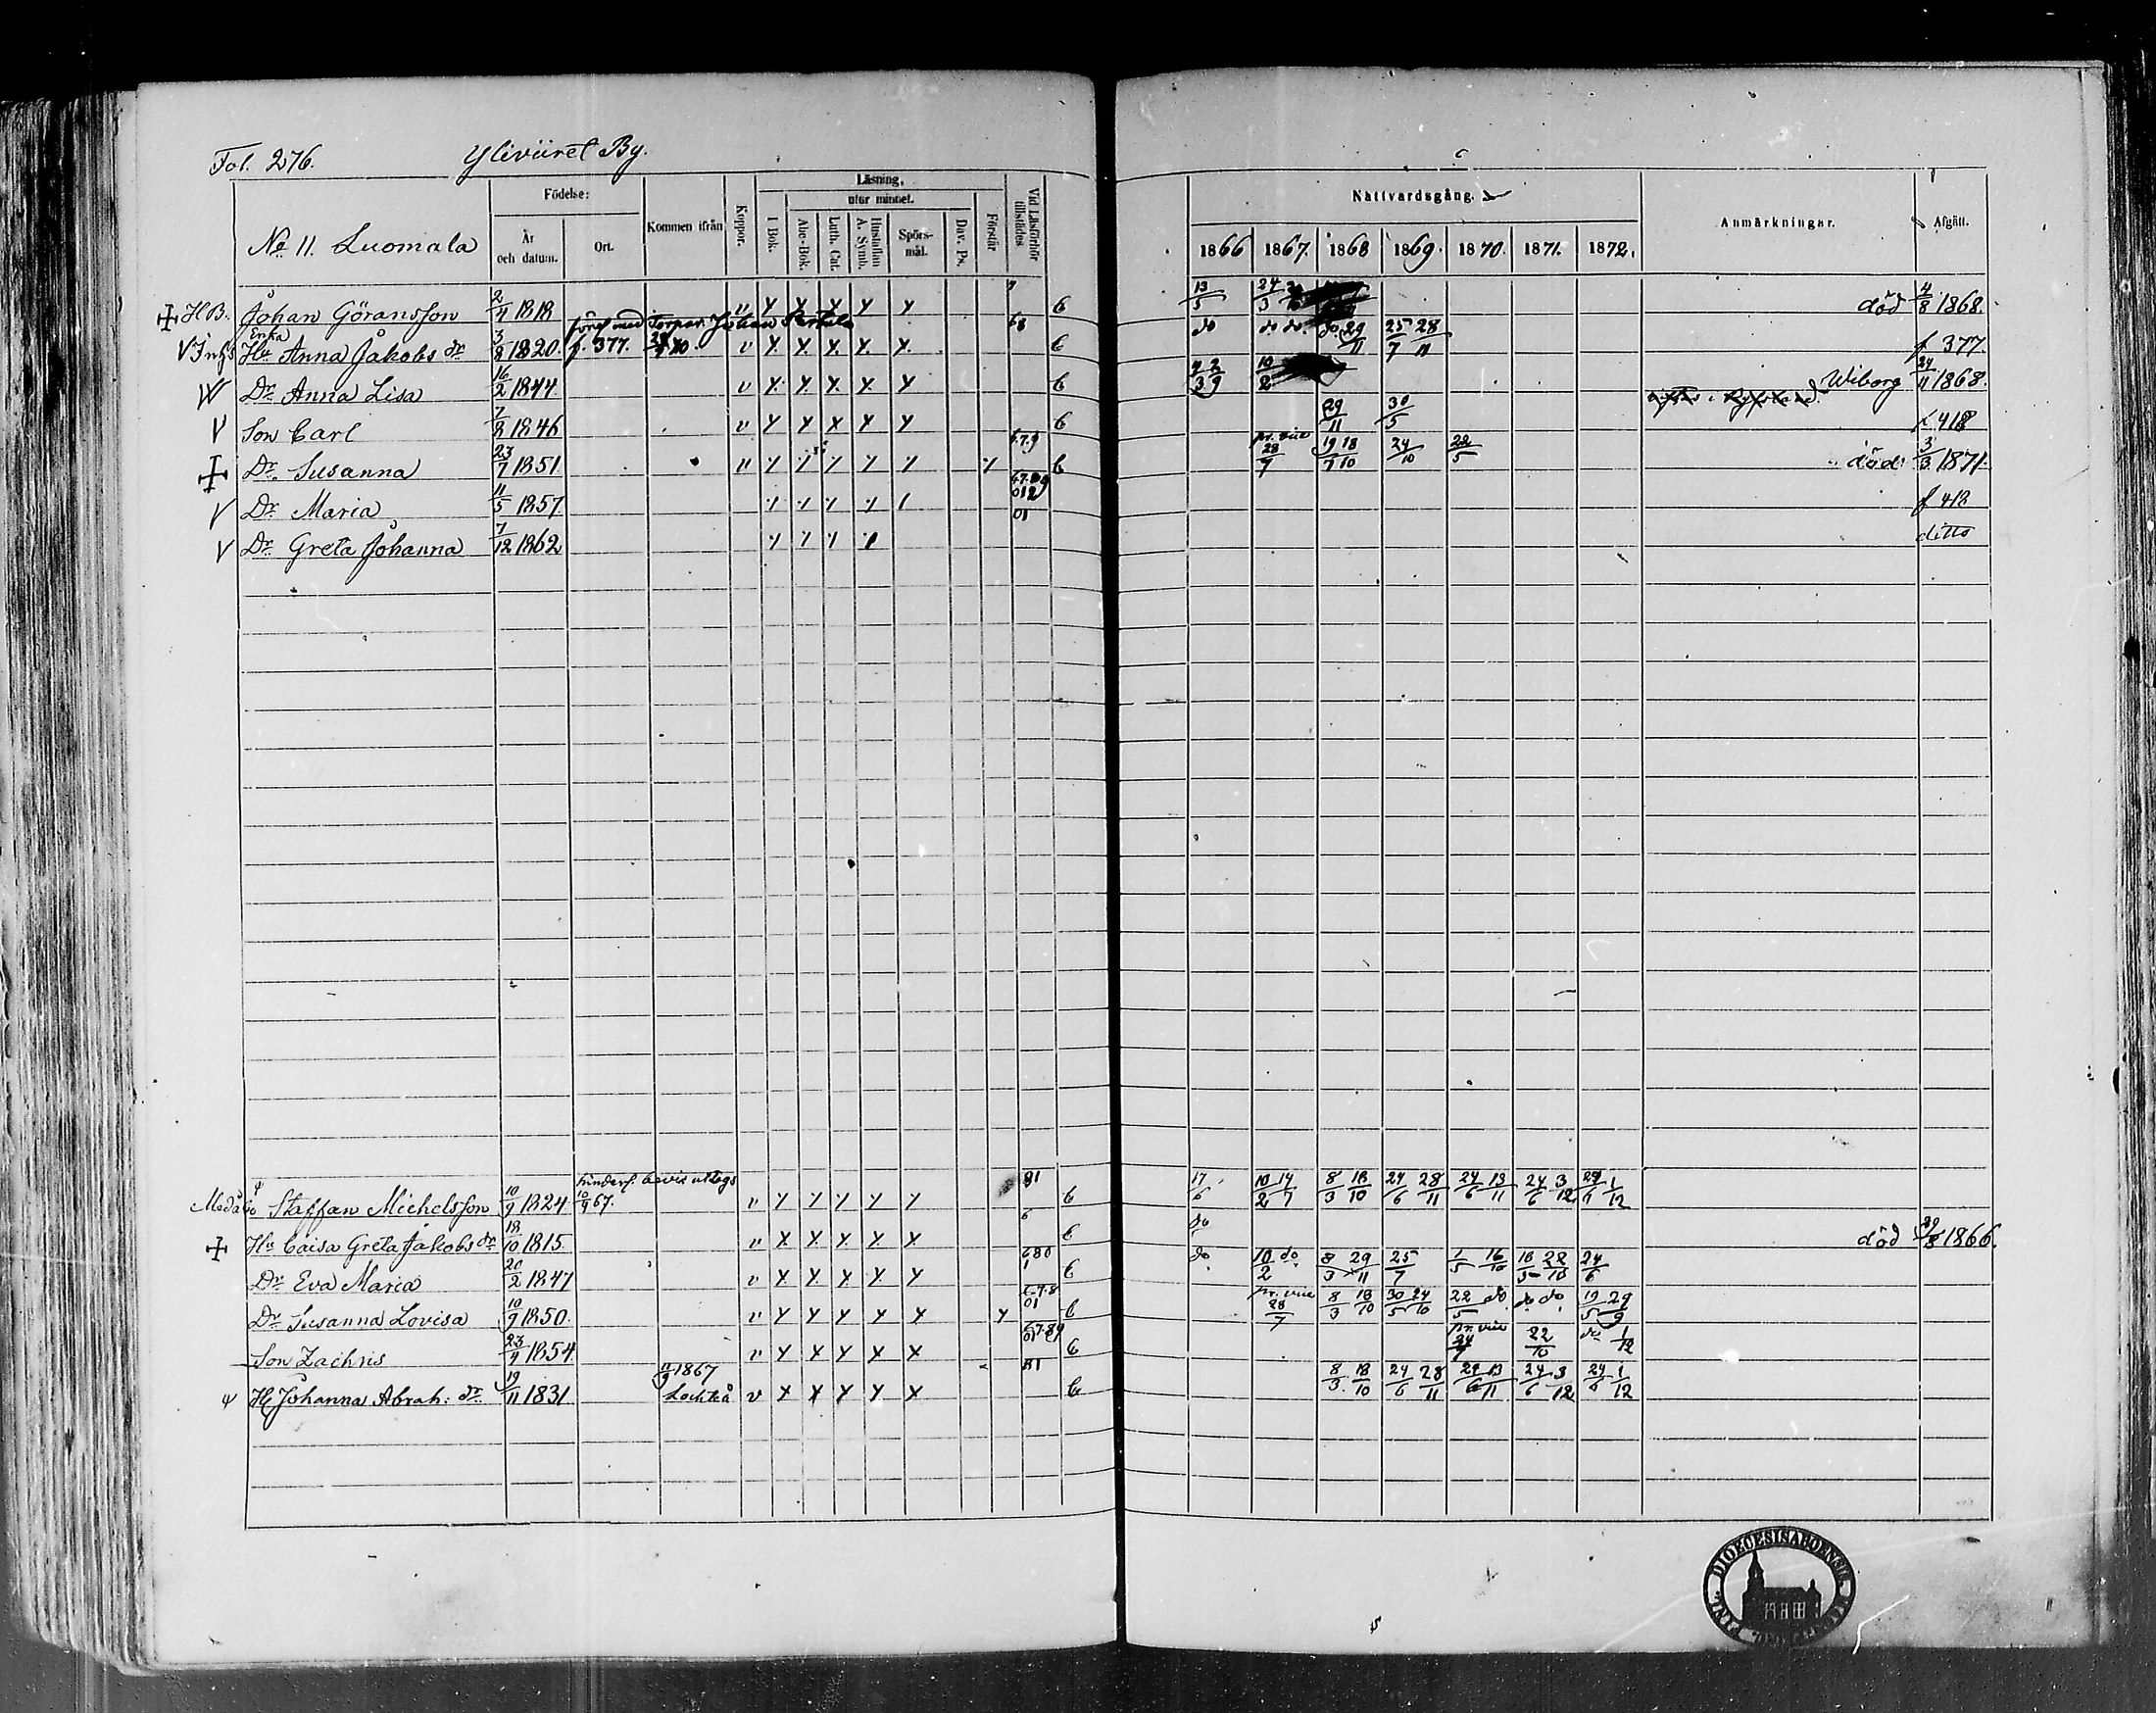 Fol. 276. Yliviiret By.
No 11. Luomala
Födelse:
År och datum.
Ort.
Kommen ifrån
Koppor.
Läsning,
utur minnet.
I Bok.
Abc-Bok.
Luth. Cat.
Hustaflan A. Symb.
Spörs-mål.
Dav. Ps.
Förstår
Vid Läsförhör tillstädes
Nattvardsgång.
1866 1867. 1868 1869. 1870. 1871. 1872.
Anmärkningar.
Afgått.
HB. Johan Göransson 2/4 1818 v x x x x x 13/5 24/3 död 4/8 1868.
Enka
Inhs Hu Anna Jakobs dr 3/8 1820. f. 377. v x x x x x 68 do do do. do. 29/11 25/7 28/11 f 377.
Dr Anna Lisa 16/2 1844 v x x x x x 10/2 Wiborg 24/11 1868.
Son Carl 7/8 1846 v x x x x x 29/11 30/5 f 418
Dr. Susanna 23/7 1851 6.7.9 pr. vice 28/7 19/7 18/10 24/10 22/5 död 3/3 1871.
Dr Maria 11/5 1857 012 f 418
Dr Greta Johanna 7/12 1862 01 ditto
hinderf. bevis uttogs
Staffan Michelsson 10/9 1824 10/9 67. v 81 17/6 10/2 14/7 8/3 18/10 24/6 28/11 24/6 13/11 24/6 3/12 24/6 1/12
Hu Caisa Greta Jakobs dr 18/10 1815. v x x x x x 6 do död 29/8 1866.
Dr Eva Maria 20/2 1847 v x x x x x 680 1 do 10/2 do 8/3 29/11 25/7 1/5 16/10 18/5 22/10 24/6
Dr Susanna Lovisa 10/9 1850. v 6-7.8 01 pr. vice 28/7 8/3 18/10 30/5 24/10 22/5 do do do 19/5 29/9
Son Zachris 23/4 1854 v x x x x x 6.7.89 pr. vice 24/7 22/10 do 1/12
H. Johanna Abrah: dr 19/11 1831 11/9 1867 Lochteå v x x x x x 81 8/3 18/10 24/6 28/11 24/6 13/11 24/6 3/12 24/6 1/12